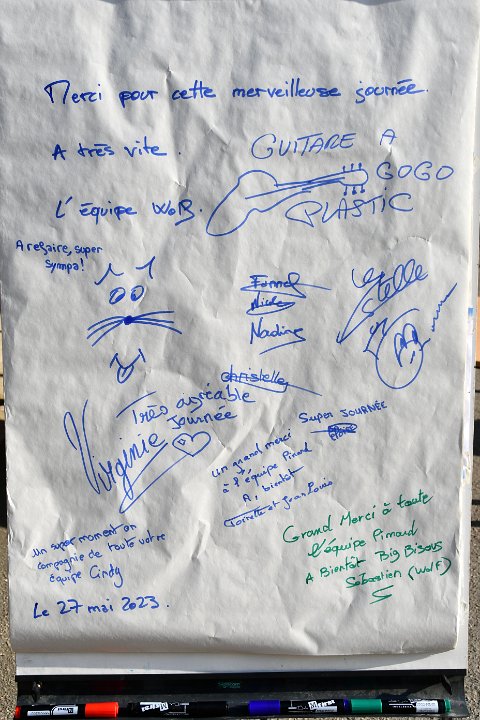 Merci pour cette merveilleuse journée.
A très vite.
L'équipe WoB.
GUITARE A
GOGO
PLASTIC
A refaire, super
sympa!
Nadine
Christelle
Estelle
Très agréable
Journée
Virginie
Super JOURNÉE
un grand merci
à l'équipe Pinard
A, bientôt
et Jean Louis
un super moment en
compagnie de toute votre
équipe Cindy
Grand Merci à toute
l'équipe Pinaud
A Bientôt Big Bisous
Sébastien (Wolf)
Le 27 mai 2023.